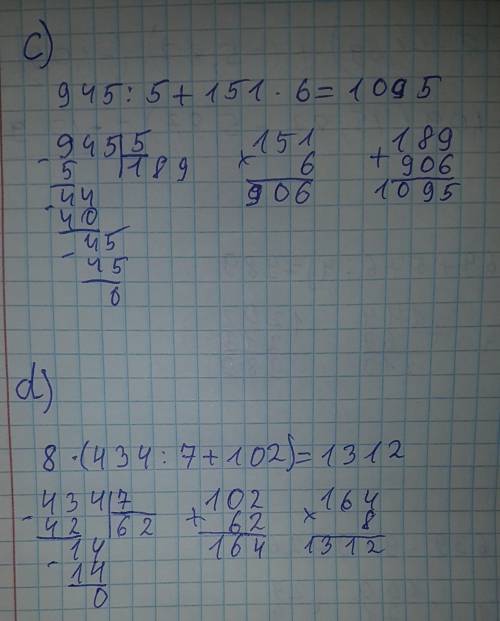 c)
945:5+151·6=1095
- 945 5 151 189
5 189 × 6 + 906
44 906 1095
- 40
45
- 45
0
d)
8·(434:7+102)=1312
- 434 7 102 164
42 62 + 62 × 8
14 164 1312
- 14
0